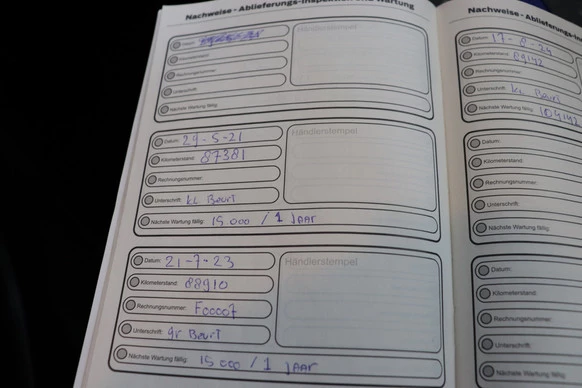 Nachweise - Ablieferungs-Inspektion und Wartung
Datum:
Kilometerstand:
Rechnungsnummer:
Unterschrift:
Nächste Wartung fällig:
Händlerstempel
Datum: 29-5-21
Kilometerstand: 87381
Rechnungsnummer:
Unterschrift: kl Beurt
Nächste Wartung fällig: 15 000 / 1 Jaar
Händlerstempel
Datum: 21-7-23
Kilometerstand: 88910
Rechnungsnummer: F00007
Unterschrift: gr Beurt
Nächste Wartung fällig: 15 000 / 1 Jaar
Händlerstempel
Nachweise - Ablieferungs-In
Datum: 17-8-24
Kilometerstand: 89192
Rechnungsnummer:
Unterschrift: kl Beurt
Nächste Wartung fällig: 104192
Datum:
Kilometerstand:
Rechnungsnummer:
Unterschrift:
Nächste Wartung fällig:
Datum:
Kilometerstand:
Rechnungsnummer:
Unterschrift:
Nächste Wartung fällig: